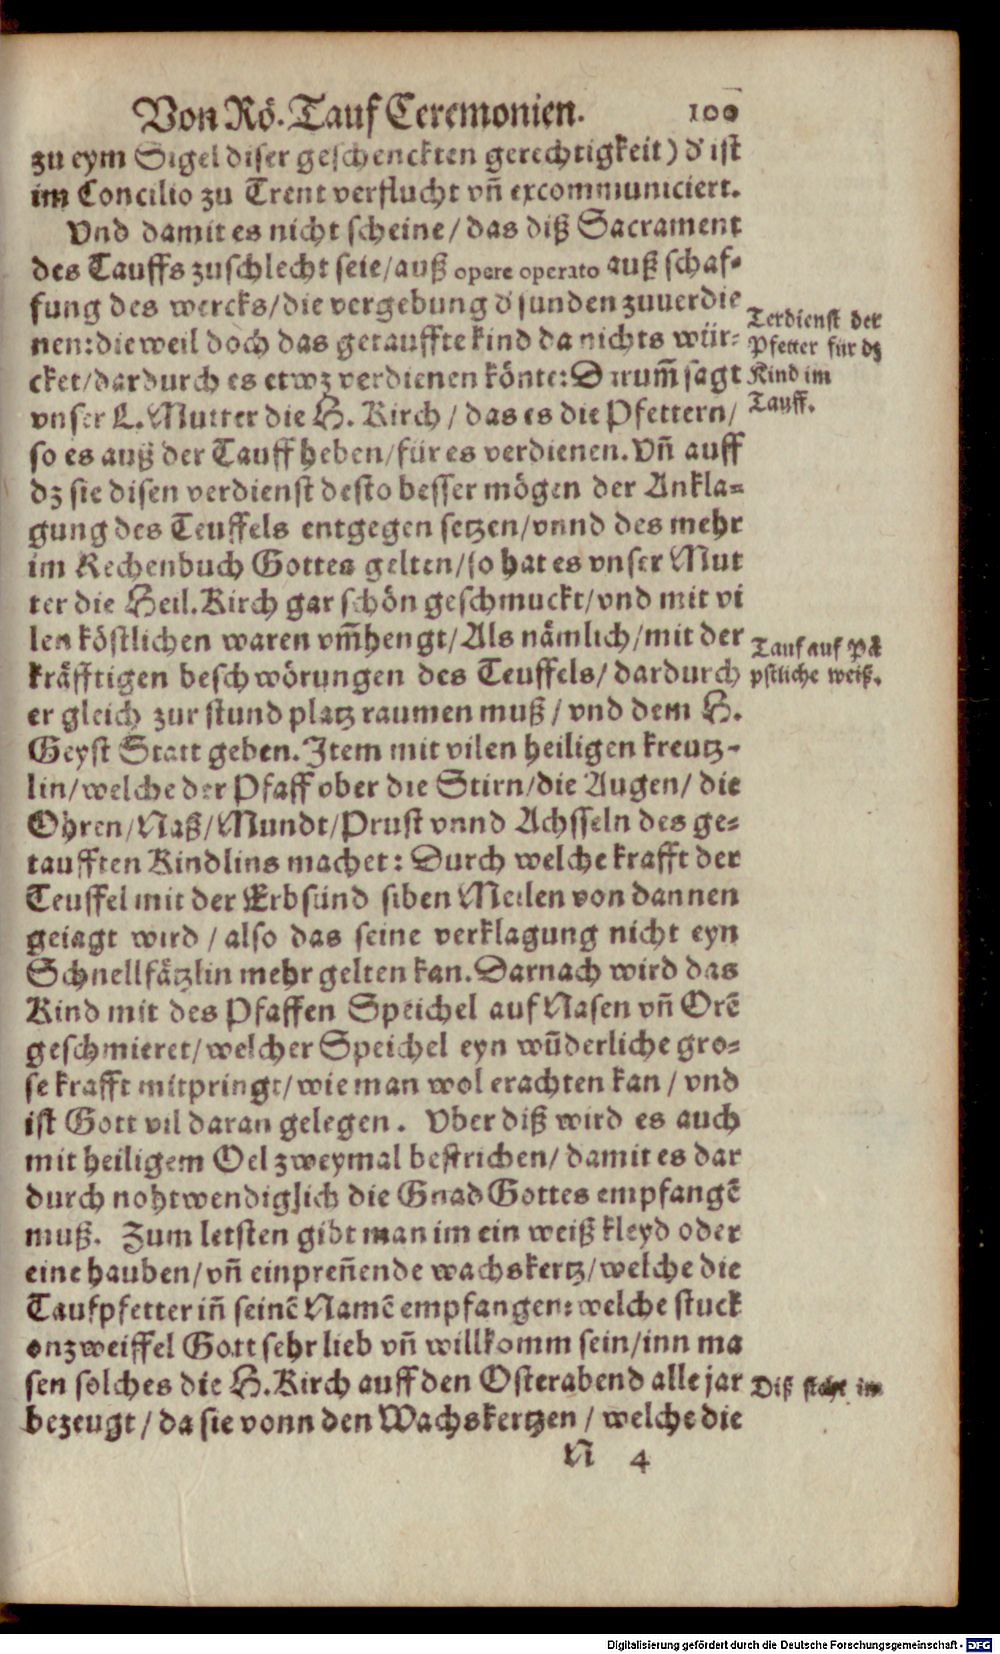 Von Rö. Tauf Ceremonien. 100
zu eym Sigel diser geschenckten gerechtigkeit) d' ist
im Concilio zu Trent verflucht vñ excommuniciert.
Vnd damit es nicht scheine/ das diß Sacrament
des Tauffs zuschlecht seie/ auß opere operato auß schaf-
fung des wercks/ die vergebung d' sunden zuuerdie
nen: dieweil doch das getauffte kind da nichts wür-
cket/ dardurch es etwz verdienen könte: Darum̃ sagt
vnser L. Mutter die H. Kirch/ das es die Pfettern/
so es auß der Tauff heben/ für es verdienen. Vñ auff
dz sie disen verdienst desto besser mögen der Ankla-
gung des Teuffels entgegen setzen/ vnnd des mehr
im Rechenbuch Gottes gelten/ so hat es vnser Mut
ter die Heil. Kirch gar schön geschmuckt/ vnd mit vi
len köstlichen waren vm̃hengt/ Als nämlich/ mit der
kräfftigen beschwörungen des Teuffels/ dardurch
er gleich zur stund platz raumen muß/ vnd dem H.
Geyst Statt geben. Item mit vilen heiligen kreutz-
lin/ welche der Pfaff ober die Stirn/ die Augen/ die
Ohren/ Naß/ Mundt/ Prust vnnd Achsseln des ge-
taufften Kindlins machet: Durch welche krafft der
Teuffel mit der Erbsünd siben Meilen von dannen
geiagt wird/ also das seine verklagung nicht eyn
Schnellfätzlin mehr gelten kan. Darnach wird das
Kind mit des Pfaffen Speichel auf Nasen vñ Orẽ
geschmieret/ welcher Speichel eyn wũderliche gro-
se krafft mitpringt/ wie man wol erachten kan/ vnd
ist Gott vil daran gelegen. Vber diß wird es auch
mit heiligem Oel zweymal bestrichen/ damit es dar
durch nohtwendiglich die Gnad Gottes empfangẽ
muß. Zum letsten gibt man im ein weiß kleyd oder
eine hauben/ vñ ein preñende wachskertz/ welche die
Taufpfetter iñ seinẽ Namẽ empfangen: welche stuck
onzweiffel Gott sehr lieb vñ willkomm sein/ inn ma
sen solches die H. Kirch auff den Osterabend alle jar
bezeugt/ da sie vonn den Wachskertzen/ welche die
N 4
Verdienst der
Pfetter für dz
Kind im
Tauff.
Tauf auf Pä
pstliche weiß.
Diß steht im
Digitalisierung gefördert durch die Deutsche Forschungsgemeinschaft - DFG